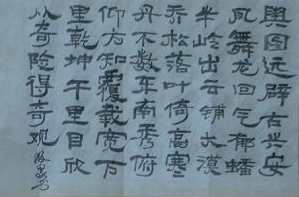 舆图远辟古兴安
凤舞龙回气郁蟠
半岭出云铺大漠
乔松落叶倚高寒
丹不数东南秀俯
仰方知覆载宽万
里乾坤千里目欣
从奇险得奇观